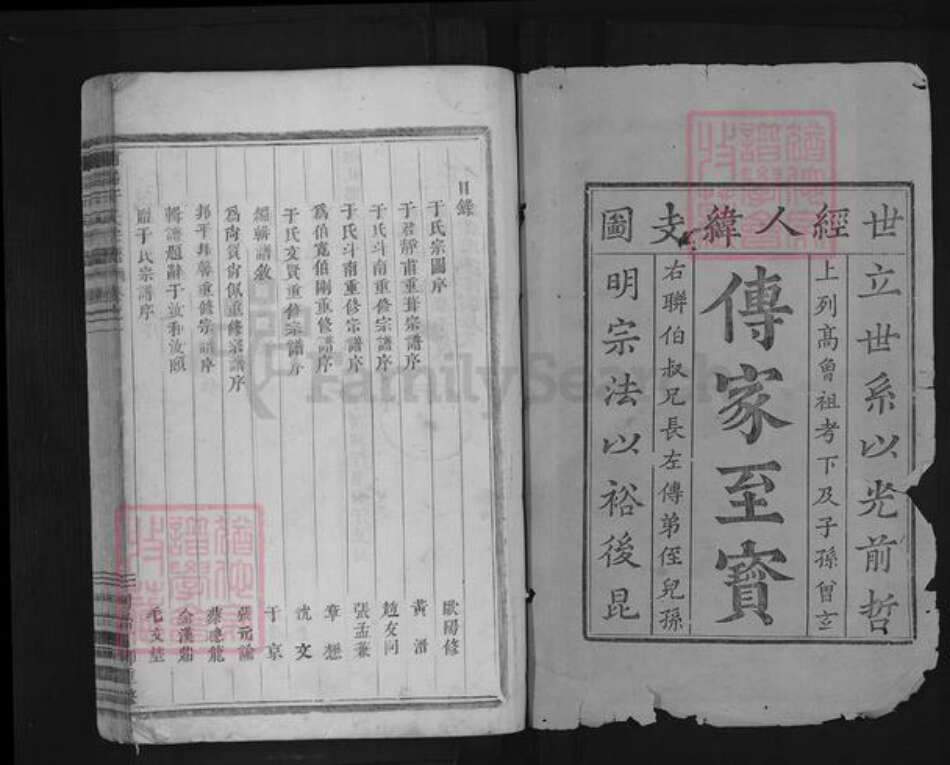 世經人緯支圖
立世系以光前哲
上列高曾祖考下及子孫曾玄
傳家至寶
右聯伯叔兄長左傳弟侄兒孫
明宗法以裕後昆
目錄
于氏宗圖序 歐陽修
于君靜甫重葺宗譜序 黃溍
于氏斗南重修宗譜序 趙友同
于氏斗南重修宗譜序 張孟兼
爲伯寬伯剛重修譜序 章懋
于氏文賢重修宗譜序 沈文
編輯譜敘 于京
爲尚賓尚佩重修宗譜序 張元諭
邦平邦馨重修宗譜序 蔡應龍
輯譜題辭于汝和汝頤 金漢鼎
于氏宗譜序 毛文埜
FamilySearch